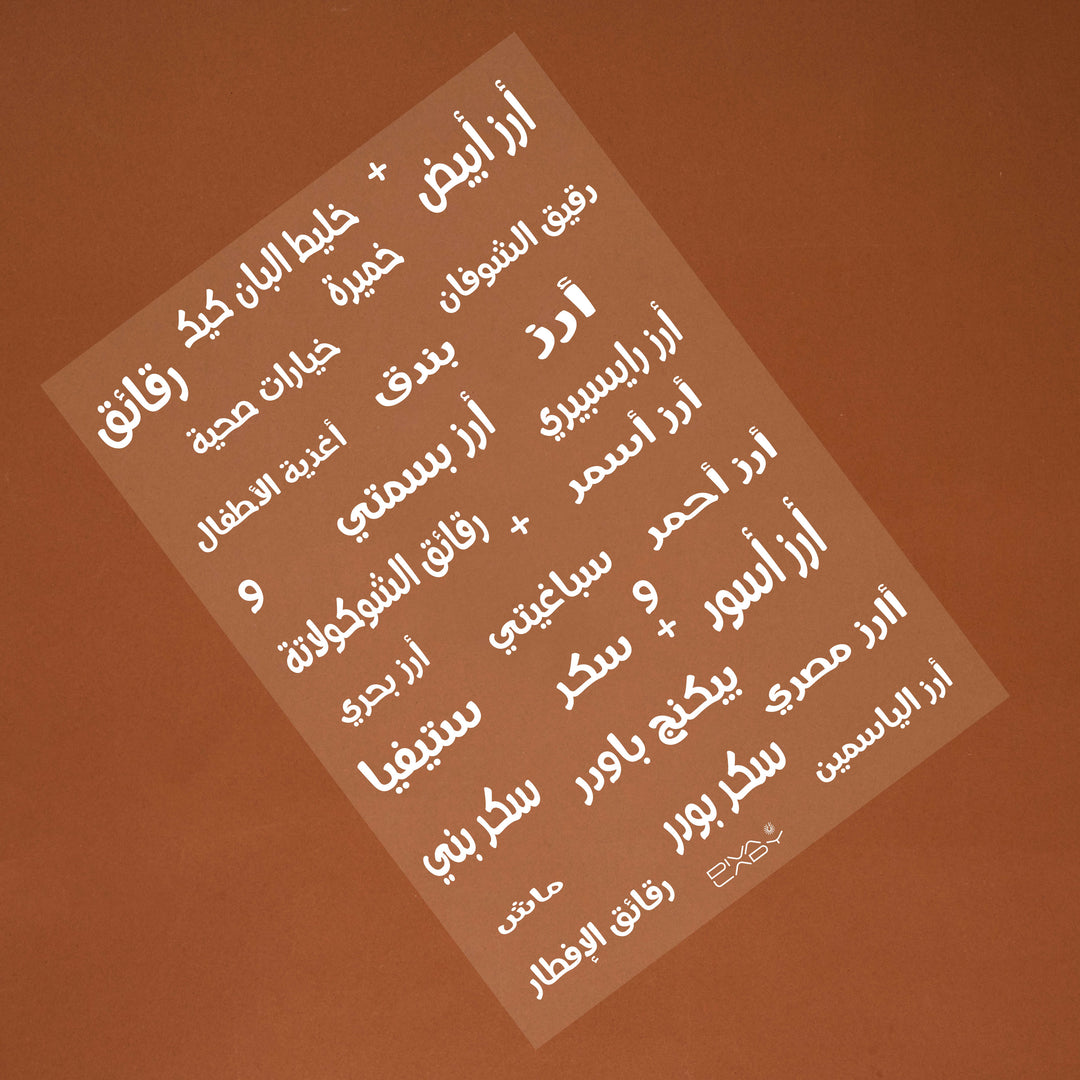 أرز أبيض
+
خليط البان كيك
رقائق
رقيق الشوفان
خميرة
خيارات صحية
أرز
بندق
أغذية الأطفال
أرز رايسبيري
أرز بسمتي
و
أرز أسمر
+
رقائق الشوكولاتة
أرز أحمر
سباغيتي
أرز بحري
أرز أسور
و
+
سكر
ستيفيا
أارز مصري
بيكنج باودر
سكر بني
أرز الياسمين
سكر بودر
ماش
رقائق الإفطار
DIVA
LADY